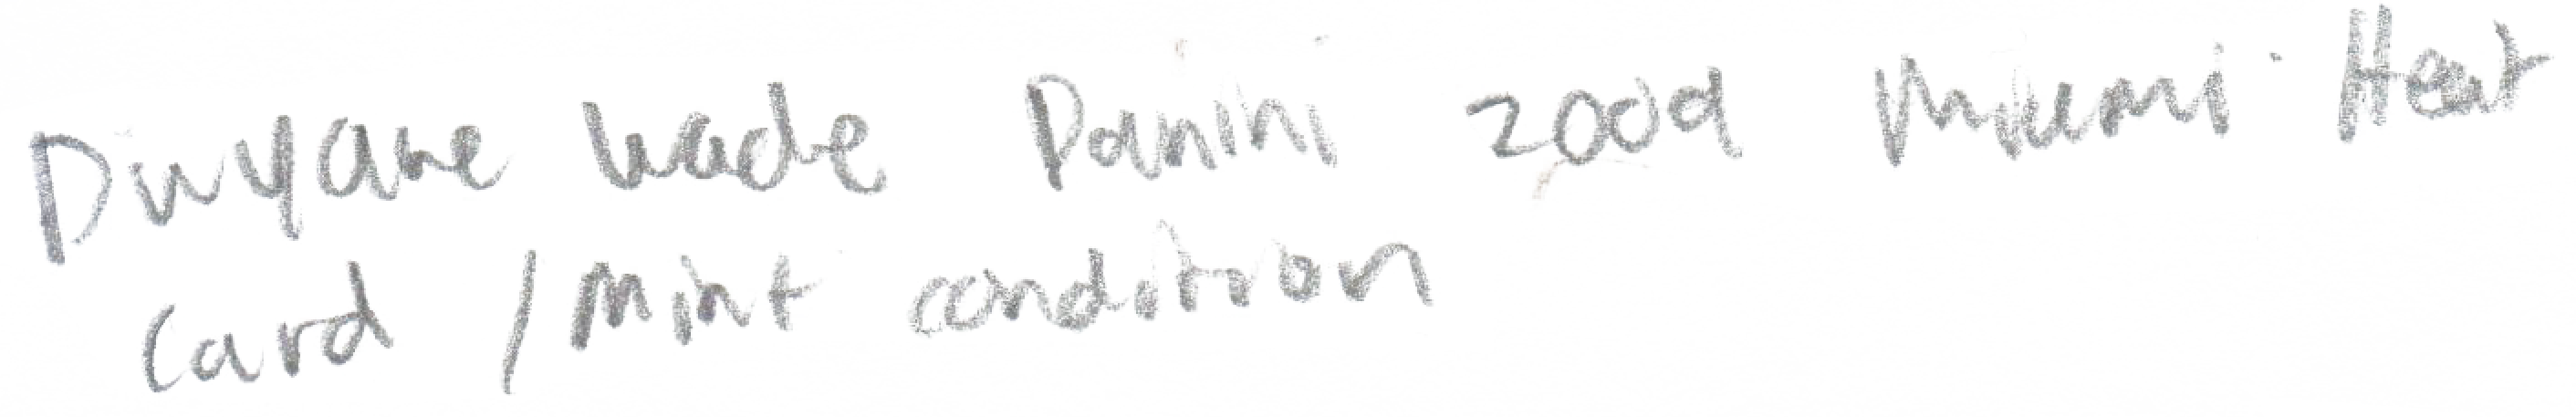 Dwyane Wade Panini 2009 Miami Heat
Card / Mint condition